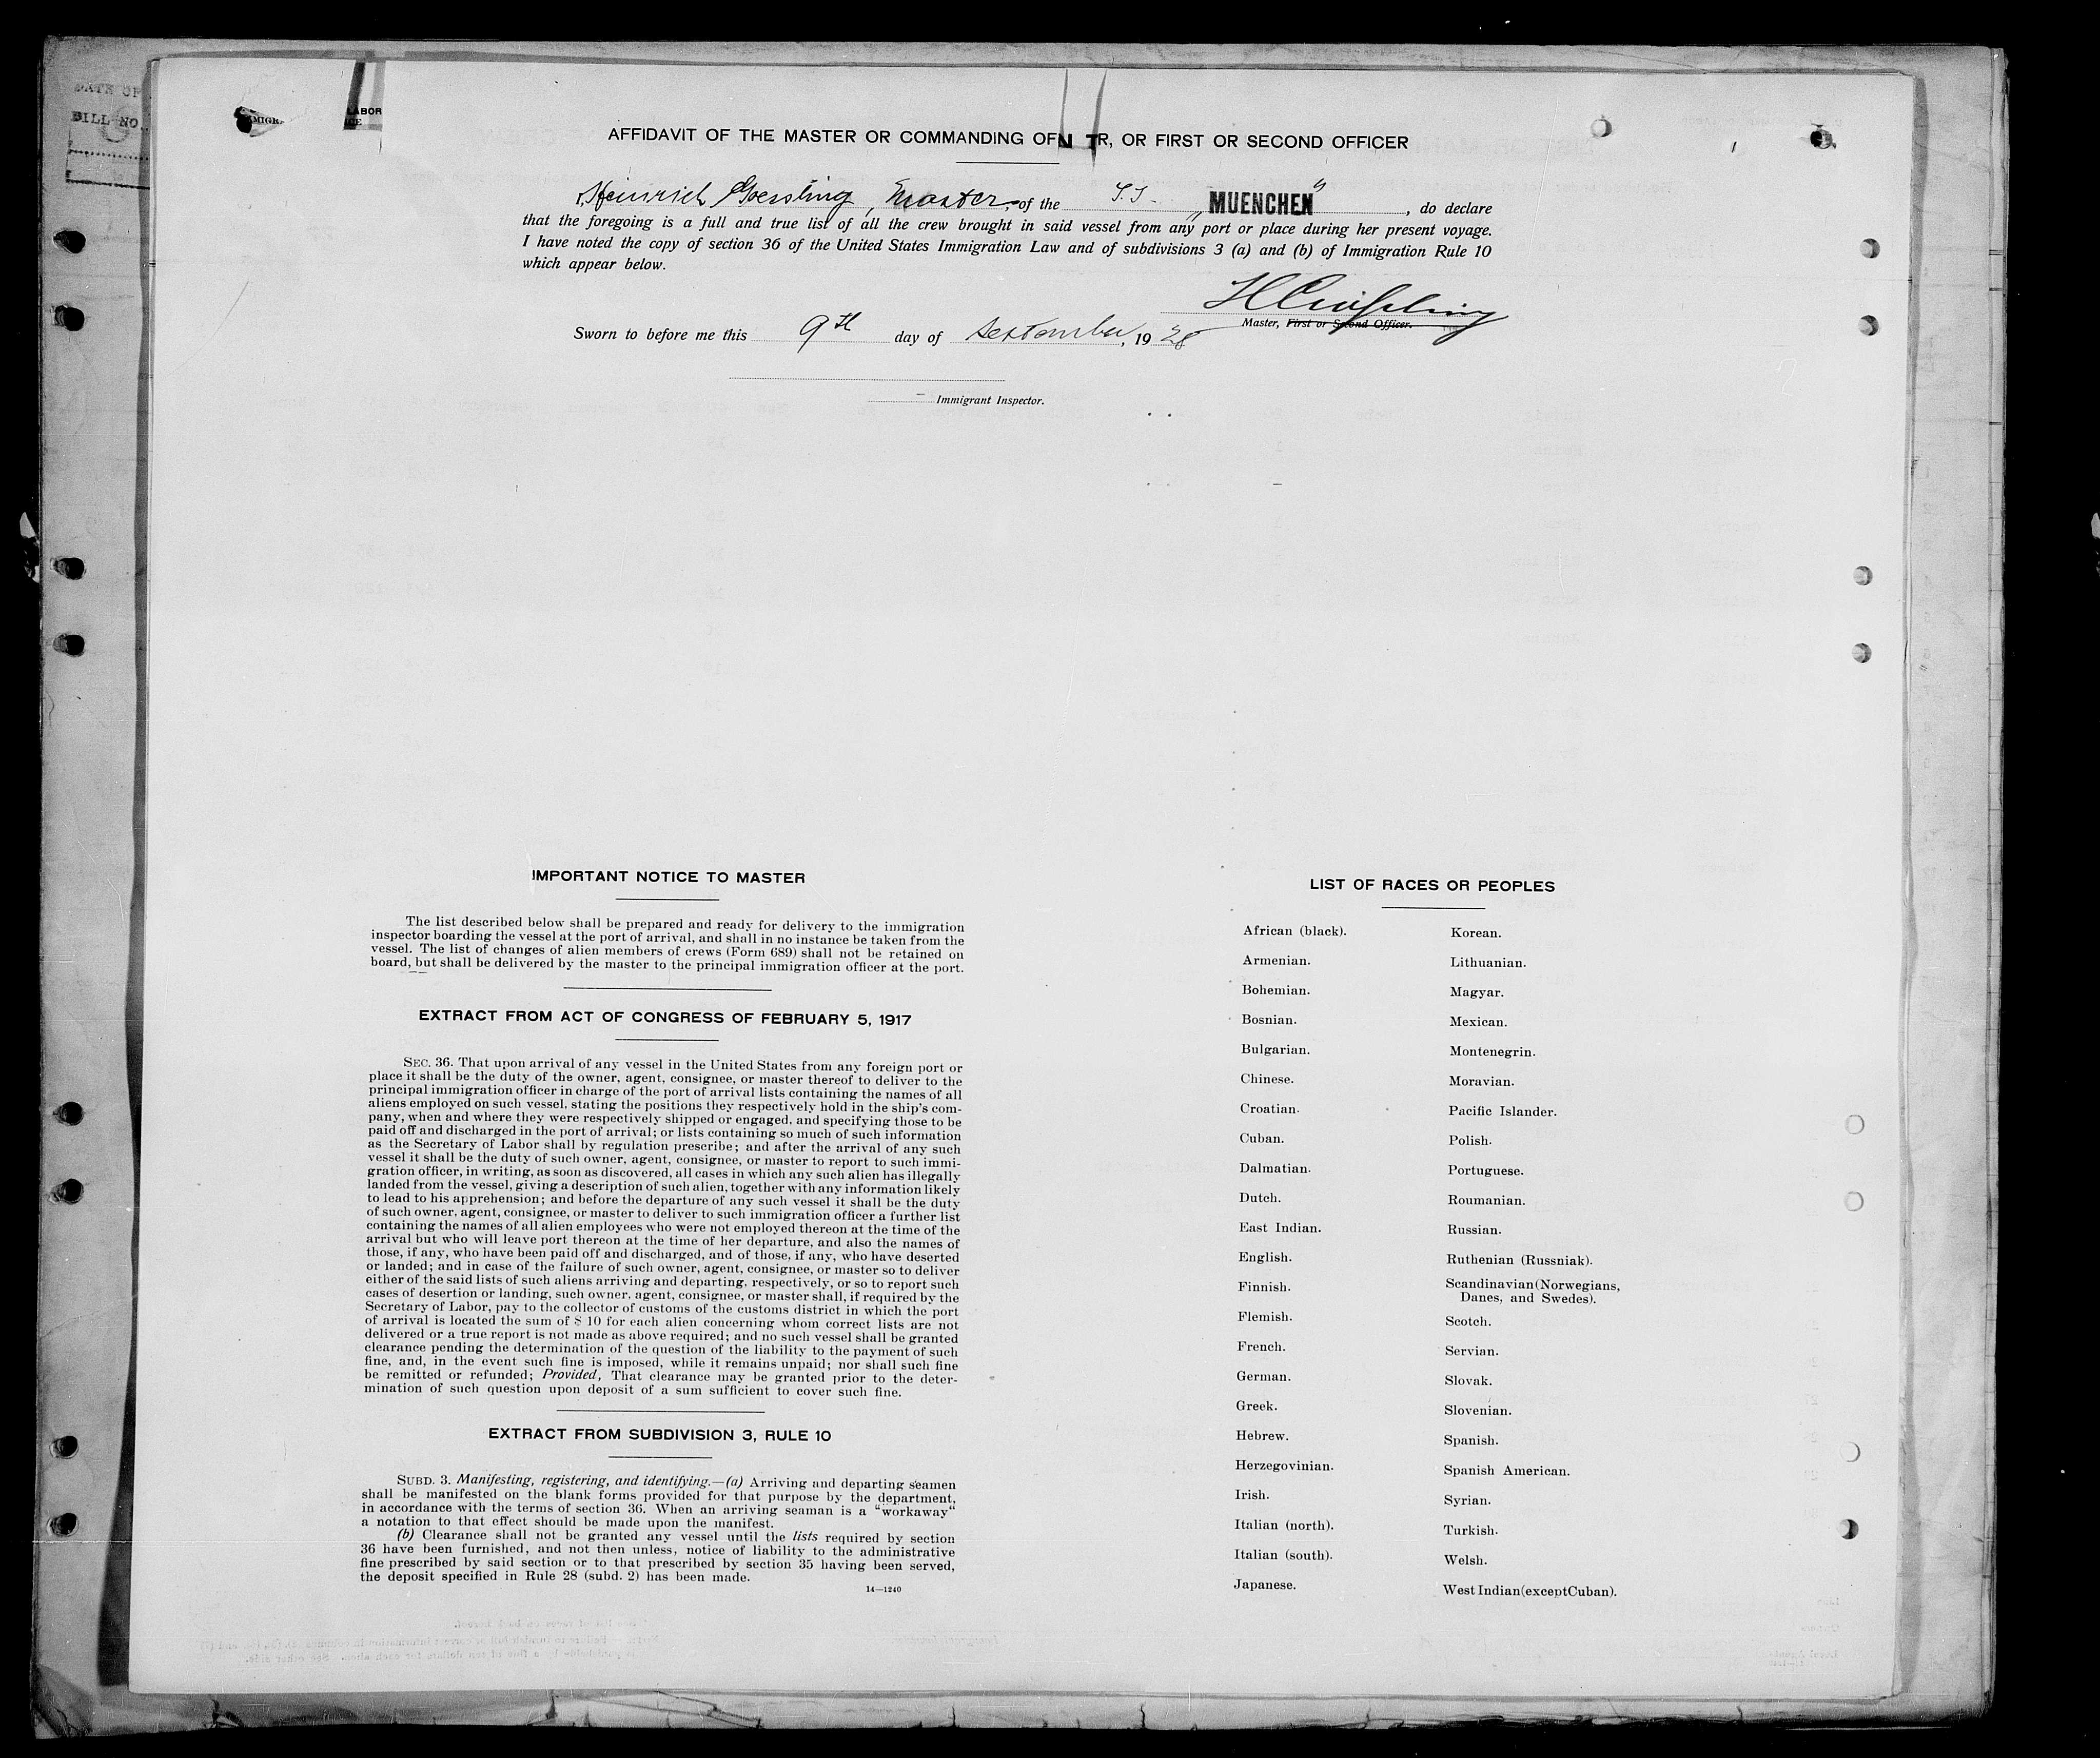 DATE OF
BILL NO.
MIGR
LABOR
CE
AFFIDAVIT OF THE MASTER OR COMMANDING OF R, OR FIRST OR SECOND OFFICER
I, Heinrich Goessling, Master, of the S.S. „MUENCHEN“, do declare
that the foregoing is a full and true list of all the crew brought in said vessel from any port or place during her present voyage.
I have noted the copy of section 36 of the United States Immigration Law and of subdivisions 3 (a) and (b) of Immigration Rule 10
which appear below.
Master, First or Second Officer.
Sworn to before me this 9th day of September, 1928
Immigrant Inspector.
IMPORTANT NOTICE TO MASTER
The list described below shall be prepared and ready for delivery to the immigration
inspector boarding the vessel at the port of arrival, and shall in no instance be taken from the
vessel. The list of changes of alien members of crews (Form 689) shall not be retained on
board, but shall be delivered by the master to the principal immigration officer at the port.
EXTRACT FROM ACT OF CONGRESS OF FEBRUARY 5, 1917
SEC. 36. That upon arrival of any vessel in the United States from any foreign port or
place it shall be the duty of the owner, agent, consignee, or master thereof to deliver to the
principal immigration officer in charge of the port of arrival lists containing the names of all
aliens employed on such vessel, stating the positions they respectively hold in the ship's com-
pany, when and where they were respectively shipped or engaged, and specifying those to be
paid off and discharged in the port of arrival; or lists containing so much of such information
as the Secretary of Labor shall by regulation prescribe; and after the arrival of any such
vessel it shall be the duty of such owner, agent, consignee, or master to report to such immi-
gration officer, in writing, as soon as discovered, all cases in which any such alien has illegally
landed from the vessel, giving a description of such alien, together with any information likely
to lead to his apprehension; and before the departure of any such vessel it shall be the duty
of such owner, agent, consignee, or master to deliver to such immigration officer a further list
containing the names of all alien employees who were not employed thereon at the time of the
arrival but who will leave port thereon at the time of her departure, and also the names of
those, if any, who have been paid off and discharged, and of those, if any, who have deserted
or landed; and in case of the failure of such owner, agent, consignee, or master so to deliver
either of the said lists of such aliens arriving and departing, respectively, or so to report such
cases of desertion or landing, such owner, agent, consignee, or master shall, if required by the
Secretary of Labor, pay to the collector of customs of the customs district in which the port
of arrival is located the sum of $ 10 for each alien concerning whom correct lists are not
delivered or a true report is not made as above required; and no such vessel shall be granted
clearance pending the determination of the question of the liability to the payment of such
fine, and, in the event such fine is imposed, while it remains unpaid; nor shall such fine
be remitted or refunded; Provided, That clearance may be granted prior to the deter-
mination of such question upon deposit of a sum sufficient to cover such fine.
EXTRACT FROM SUBDIVISION 3, RULE 10
SUBD. 3. Manifesting, registering, and identifying.—(a) Arriving and departing seamen
shall be manifested on the blank forms provided for that purpose by the department,
in accordance with the terms of section 36. When an arriving seaman is a “workaway“
a notation to that effect should be made upon the manifest.
(b) Clearance shall not be granted any vessel until the lists required by section
36 have been furnished, and not then unless, notice of liability to the administrative
fine prescribed by said section or to that prescribed by section 35 having been served,
the deposit specified in Rule 28 (subd. 2) has been made.
14—1240
LIST OF RACES OR PEOPLES
African (black).
Armenian.
Bohemian.
Bosnian.
Bulgarian.
Chinese.
Croatian.
Cuban.
Dalmatian.
Dutch.
East Indian.
English.
Finnish.
Flemish.
French.
German.
Greek.
Hebrew.
Herzegovinian.
Irish.
Italian (north).
Italian (south).
Japanese.
Korean.
Lithuanian.
Magyar.
Mexican.
Montenegrin.
Moravian.
Pacific Islander.
Polish.
Portuguese.
Roumanian.
Russian.
Ruthenian (Russniak).
Scandinavian (Norwegians,
Danes, and Swedes).
Scotch.
Servian.
Slovak.
Slovenian.
Spanish.
Spanish American.
Syrian.
Turkish.
Welsh.
West Indian (except Cuban).